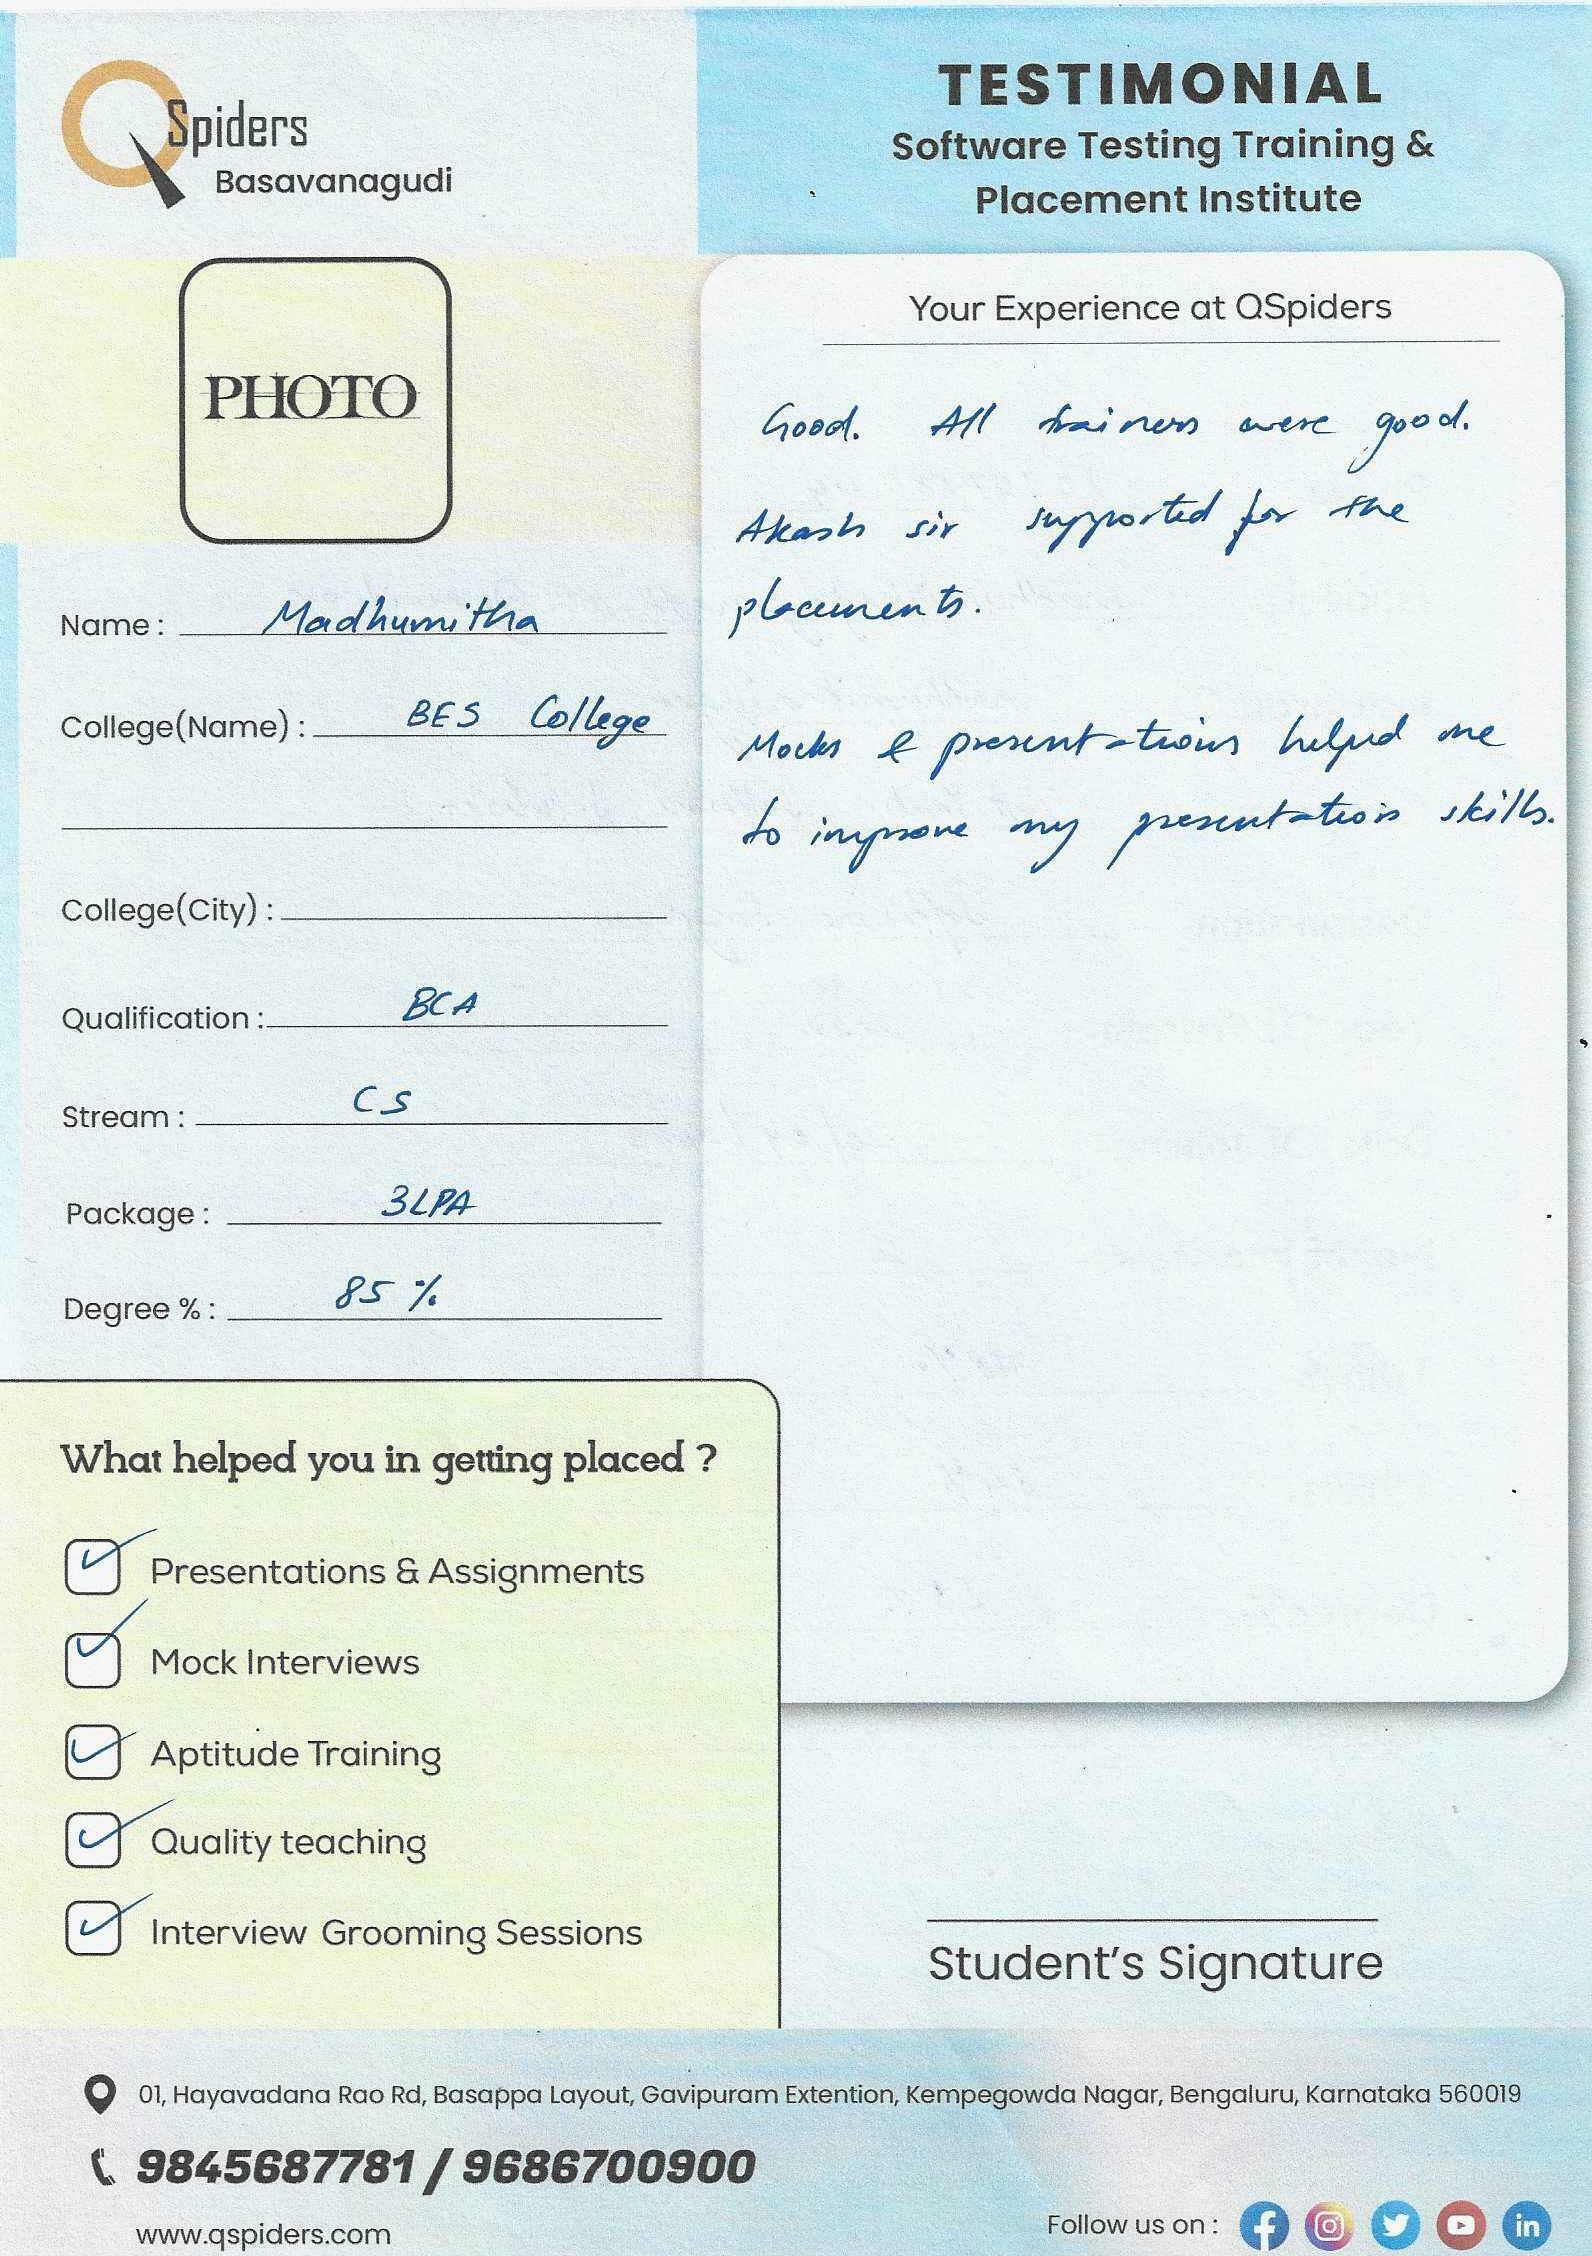 QSpiders
Basavanagudi
TESTIMONIAL
Software Testing Training &
Placement Institute
PHOTO
Name : Madhumitha
College(Name) : BES College
College(City) :
Qualification : BCA
Stream : CS
Package : 3LPA
Degree % : 85 %
Your Experience at QSpiders
Good. All trainers were good.
Akash sir supported for the
placements.
Mocks & presentations helped me
to improve my presentation skills.
What helped you in getting placed ?
Presentations & Assignments
Mock Interviews
Aptitude Training
Quality teaching
Interview Grooming Sessions
Student's Signature
01, Hayavadana Rao Rd, Basappa Layout, Gavipuram Extention, Kempegowda Nagar, Bengaluru, Karnataka 560019
9845687781 / 9686700900
www.qspiders.com
Follow us on :